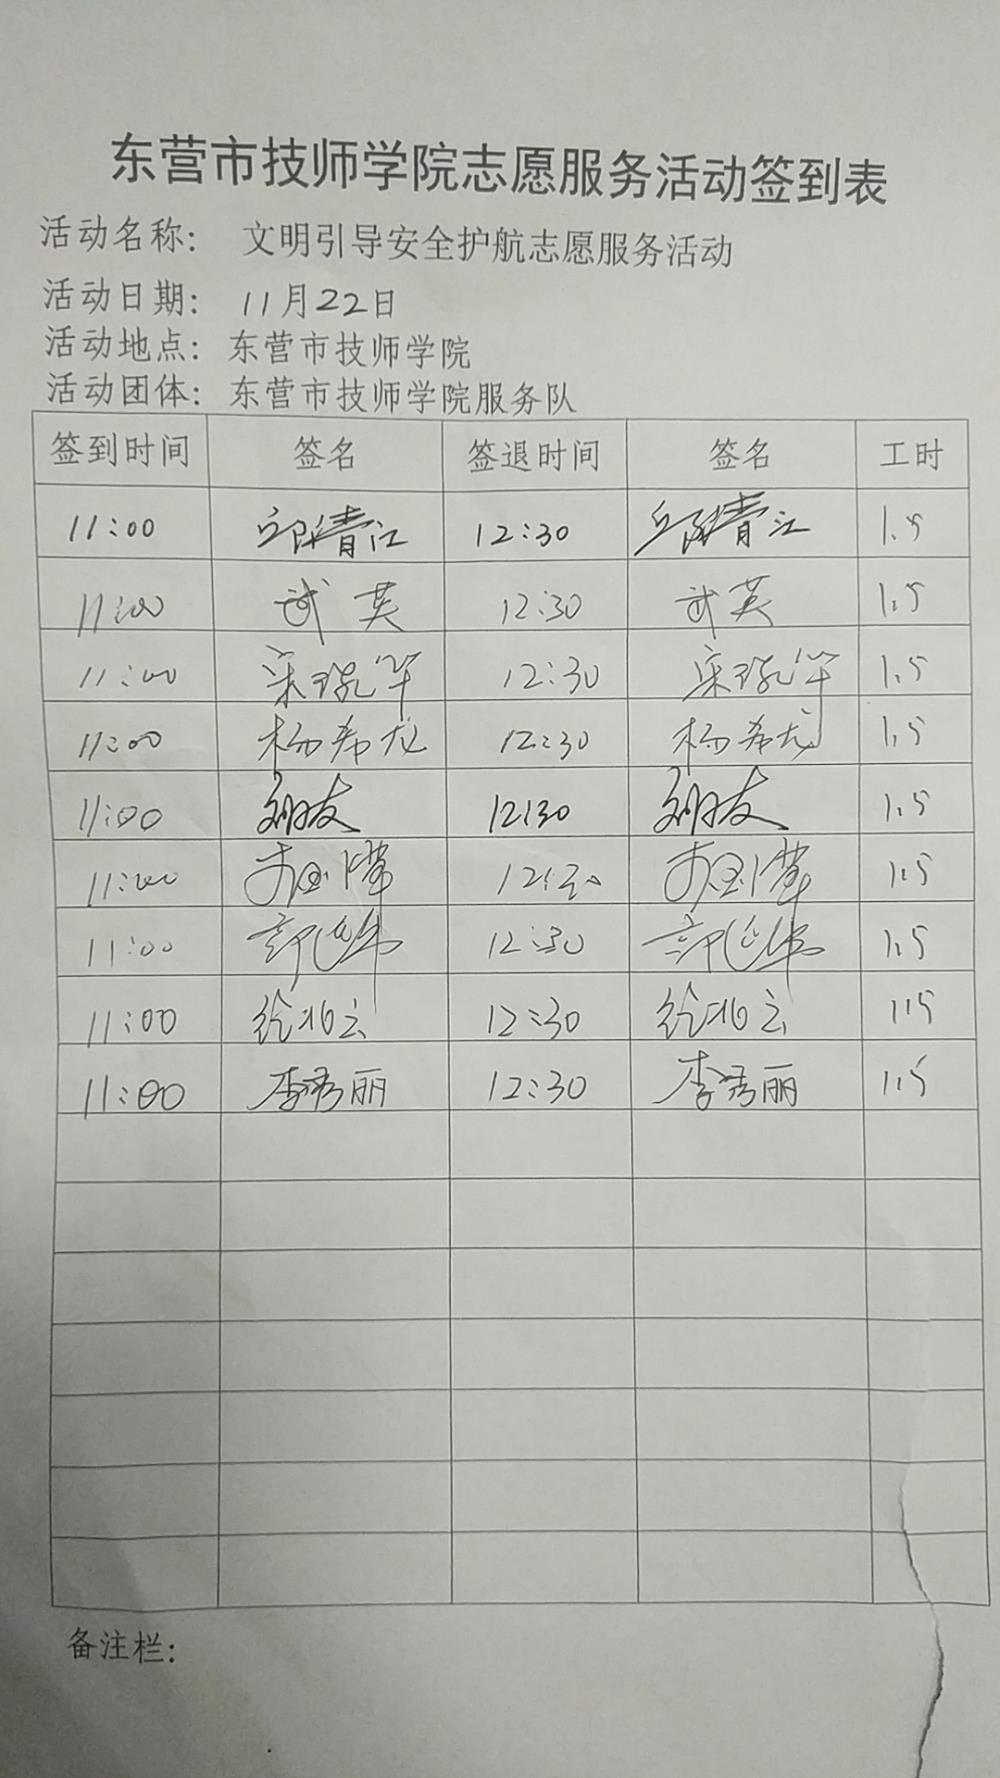 东营市技师学院志愿服务活动签到表
活动名称： 文明引导安全护航志愿服务活动
活动日期： 11月22日
活动地点： 东营市技师学院
活动团体： 东营市技师学院服务队
签到时间 签名 签退时间 签名 工时
11:00 邱青江 12:30 邱青江 1.5
11:00 武英 12:30 武英 1.5
11:00 宋琬华 12:30 宋琬华 1.5
11:00 杨希龙 12:30 杨希龙 1.5
11:00 友 12:30 友 1.5
11:00 12:30 1.5
11:00 12:30 1.5
11:00 徐兆云 12:30 徐兆云 1.5
11:00 李秀丽 12:30 李秀丽 1.5
备注栏：